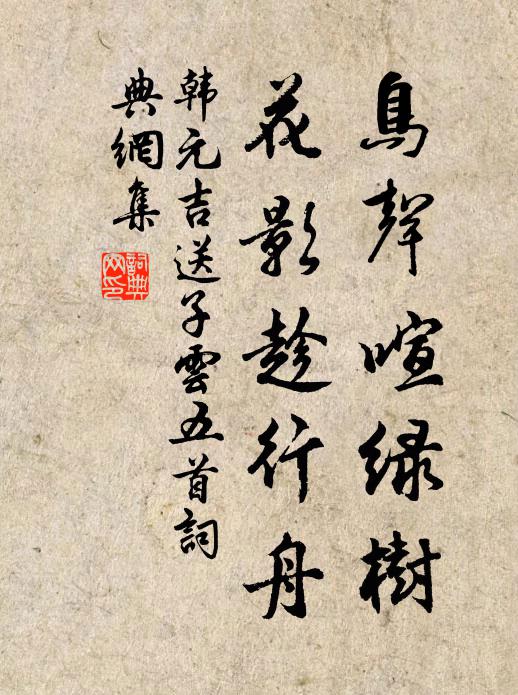 鳥聲喧绿樹
花影趁行舟
韩元吉送子雲五首詞
典網集
詞典网印